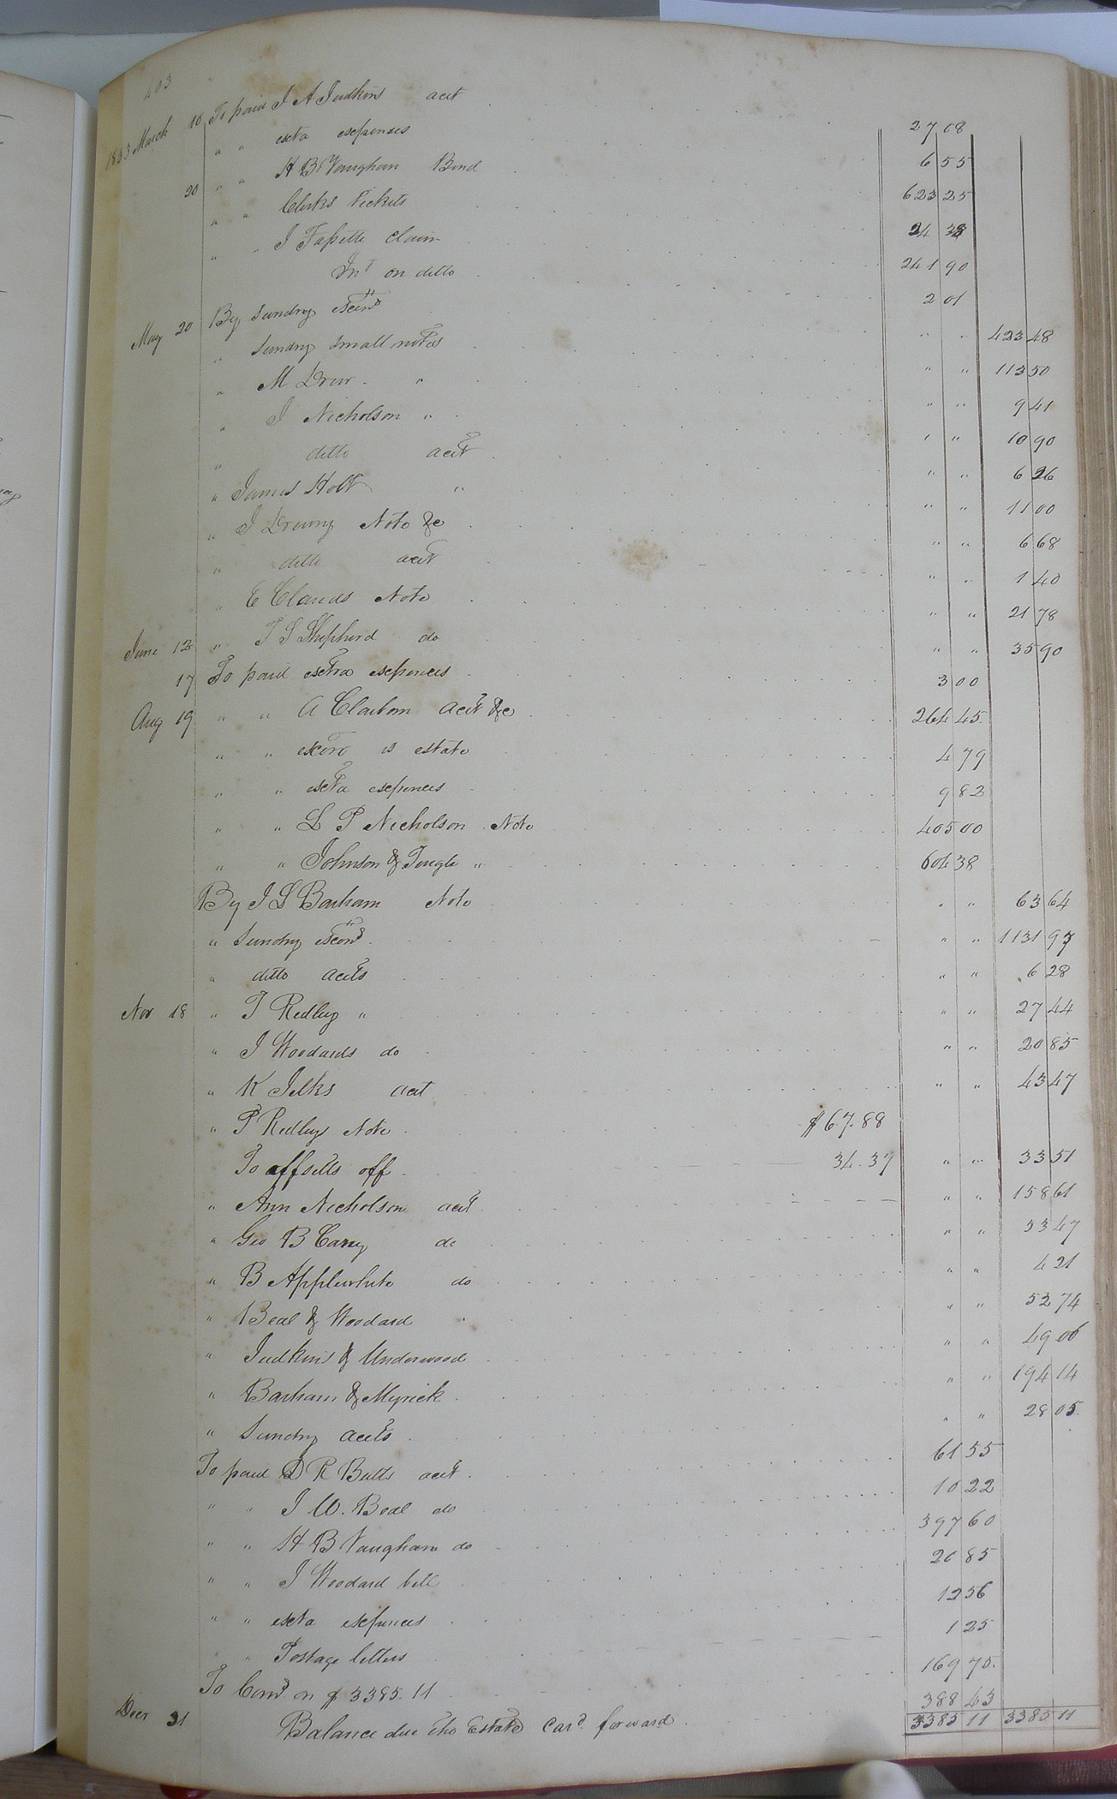 403
1853 March 10 To paid J A Judkins acct 27 08
" " extra expenses 6 55
20 " " H B Vaughan Bond 623 25
" " Clerks tickets 24 38
" " J Fassette claim 241 90
Int on ditto 2 01
May 20 By Sundry
" Sundry small notes " " 423 48
" M Drew " " " 113 50
" J Nicholson " " " 9 41
" ditto acct " " 10 90
" James Holt " " " 6 26
" J Drewry Note &c " " 11 00
" ditto acct " " 6 68
" E Clauds Note " " 1 40
June 13 " T S Shepherd do " " 21 78
" " 35 90
17 To paid extra expences 3 00
Aug 19 " " A Claiborn acct &c 264 45
" " estate 4 79
" " extra expences 9 82
" " L P Nicholson Note 405 00
" " Johnson & Pungle " 604 38
By J L Barham Note " " 63 64
" Sundry " " 1131 97
" ditto accts " " 6 28
Nov 18 " T Ridley " " " 27 44
" J Woodards do " " 20 85
" K Jelks acct " " 43 47
" T Ridleys Note $67.88
To offsetts off 34.37 " " 33 51
" Ann Nicholson acct " " 158 61
" Geo B Cary do " " 53 47
" B Applewhite do " " 4 21
" Beal & Woodard " " " 52 74
" Judkins & Underwood " " 49 06
" Barham & Myrick " " 194 14
" Sundry accts " " 28 05
To paid D R Butts acct 61 55
" " J W. Beal do 10 22
" " H B Vaughan do 397 60
" " J Woodard bill 20 85
" " extra expences 12 56
" " Postage letters 1 25
To Comn on $ 3385.11 169 70
Decr 31 Balance due the Estate card forward 388 43
3385 11 3385 11